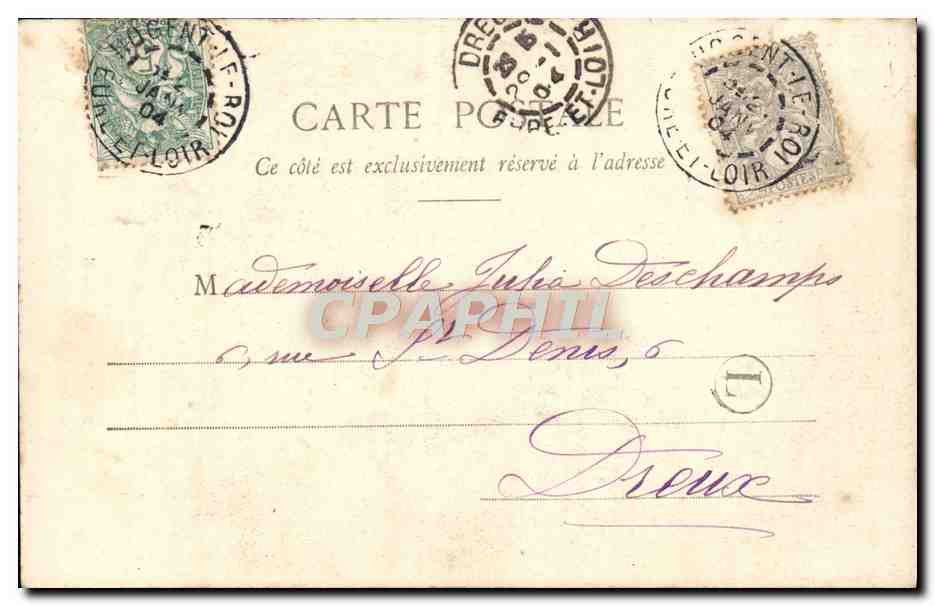 NOGENT-LE-ROI
JANV
04
EURE-ET-LOIR
DREUX
04
EURE-ET-LOIR
NOGENT-LE-ROI
JANV
04
EURE-ET-LOIR
POSTES
CARTE POSTALE
Ce côté est exclusivement réservé à l'adresse
Mademoiselle Julia Deschamps
CPAPHIL
6, rue St Denis, 6
L
Dreux